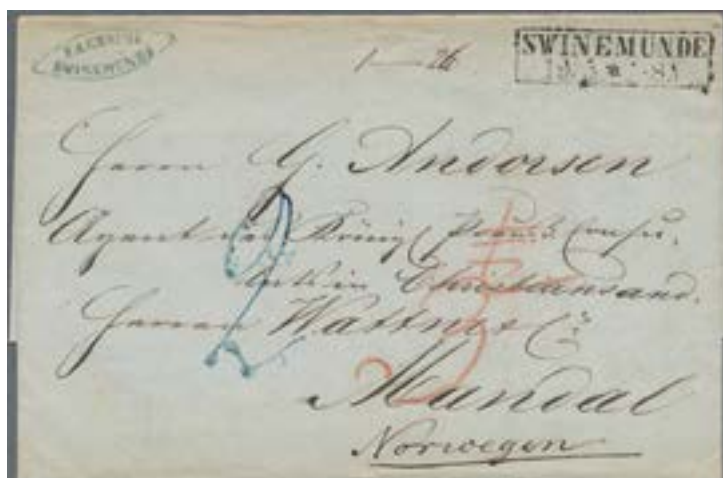 SWINEMÜNDE
1 — 26
SWINEMUNDE
Herrn G. Andorsen
Agent des Königl. Preuß. Consu-
lats in Christiansand.
Herrn Wattne & Co
Mandal
Norwegen